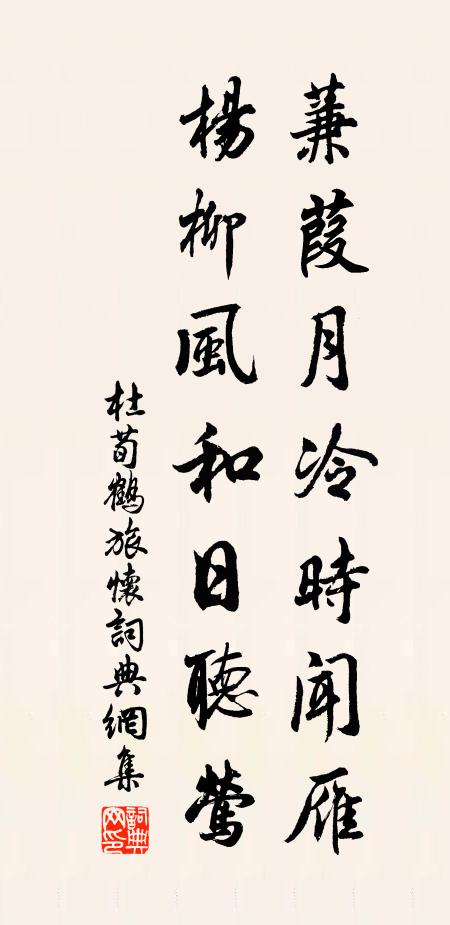 蒹葭月冷時聞雁
楊柳風和日聽鶯
杜荀鶴旅懷詞典網集
詞典网印